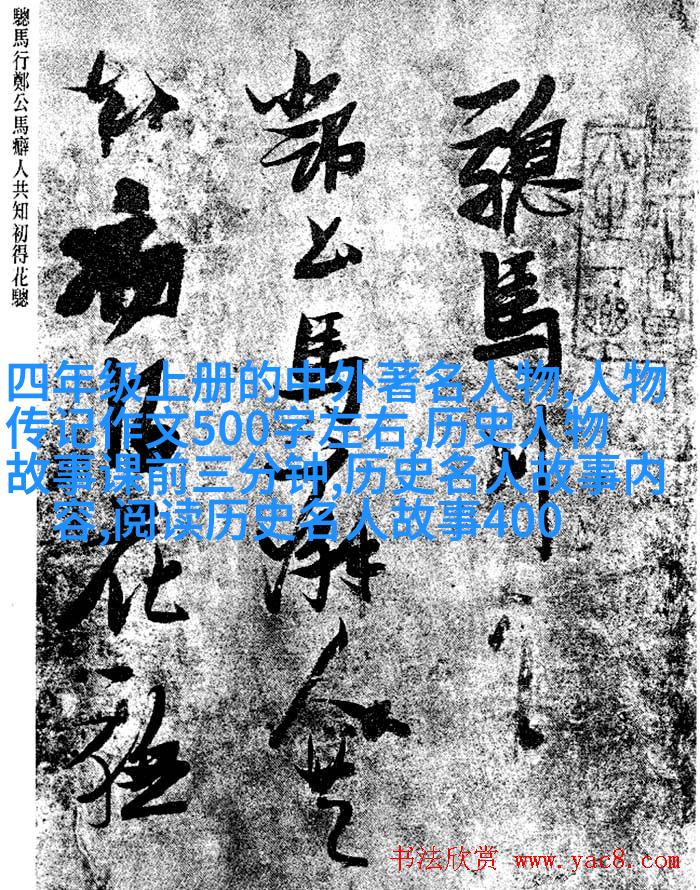 驄馬行鄭公馬癖人共知初得花驄
驄馬行
鄭公馬癖人共
知初得花驄
四年级上册的中外著名人物,人物
传记作文500字左右,历史人物
故事课前三分钟,历史名人故事内
容,阅读历史名人故事400
书法欣赏 www.yac8.com